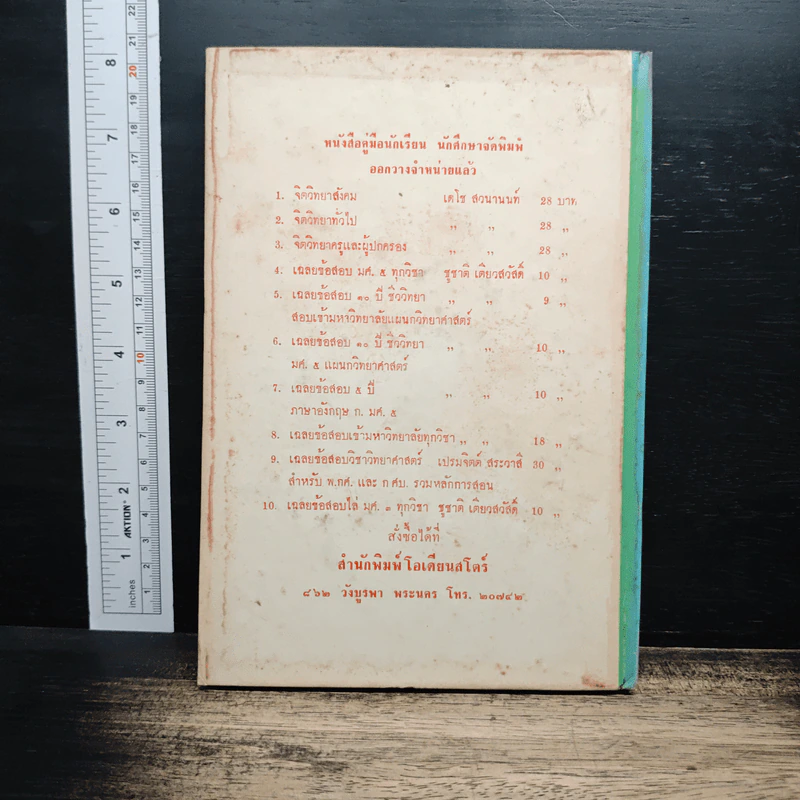 หนังสือคู่มือนักเรียน นักศึกษาจัดพิมพ์
ออกวางจำหน่ายแล้ว
1. จิตวิทยาสังคม เดโช สวนานนท์ 28 บาท
2. จิตวิทยาทั่วไป ,, ,, 28 ,,
3. จิตวิทยาครูและผู้ปกครอง ,, ,, 28 ,,
4. เฉลยข้อสอบ มศ. ๕ ทุกวิชา ชูชาติ เตียวสวัสดิ์ 10 ,,
5. เฉลยข้อสอบ ๑๐ ปี ชีววิทยา ,, ,, 9 ,,
สอบเข้ามหาวิทยาลัยแผนกวิทยาศาสตร์
6. เฉลยข้อสอบ ๑๐ ปี ชีววิทยา ,, ,, 10 ,,
มศ. ๕ แผนกวิทยาศาสตร์
7. เฉลยข้อสอบ ๕ ปี ,, ,, 10 ,,
ภาษาอังกฤษ ก. มศ. ๕
8. เฉลยข้อสอบเข้ามหาวิทยาลัยทุกวิชา ,, ,, 18 ,,
9. เฉลยข้อสอบวิชาวิทยาศาสตร์ เปรมจิตต์ สระวาสี 30 ,,
สำหรับ พ.กศ. และ ก ศบ. รวมหลักการสอน
10. เฉลยข้อสอบไล่ มศ. ๓ ทุกวิชา ชูชาติ เตียวสวัสดิ์ 10 ,,
สั่งซื้อได้ที่
สำนักพิมพ์โอเดียนสโตร์
๘๖๒ วังบูรพา พระนคร โทร. ๒๐๗๔๒
22
21
20
19
18
17
16
15
14
13
12
11
10
9
8
7
6
5
4
3
2
1
8
7
6
5
4
3
2
1
inches
AKTION